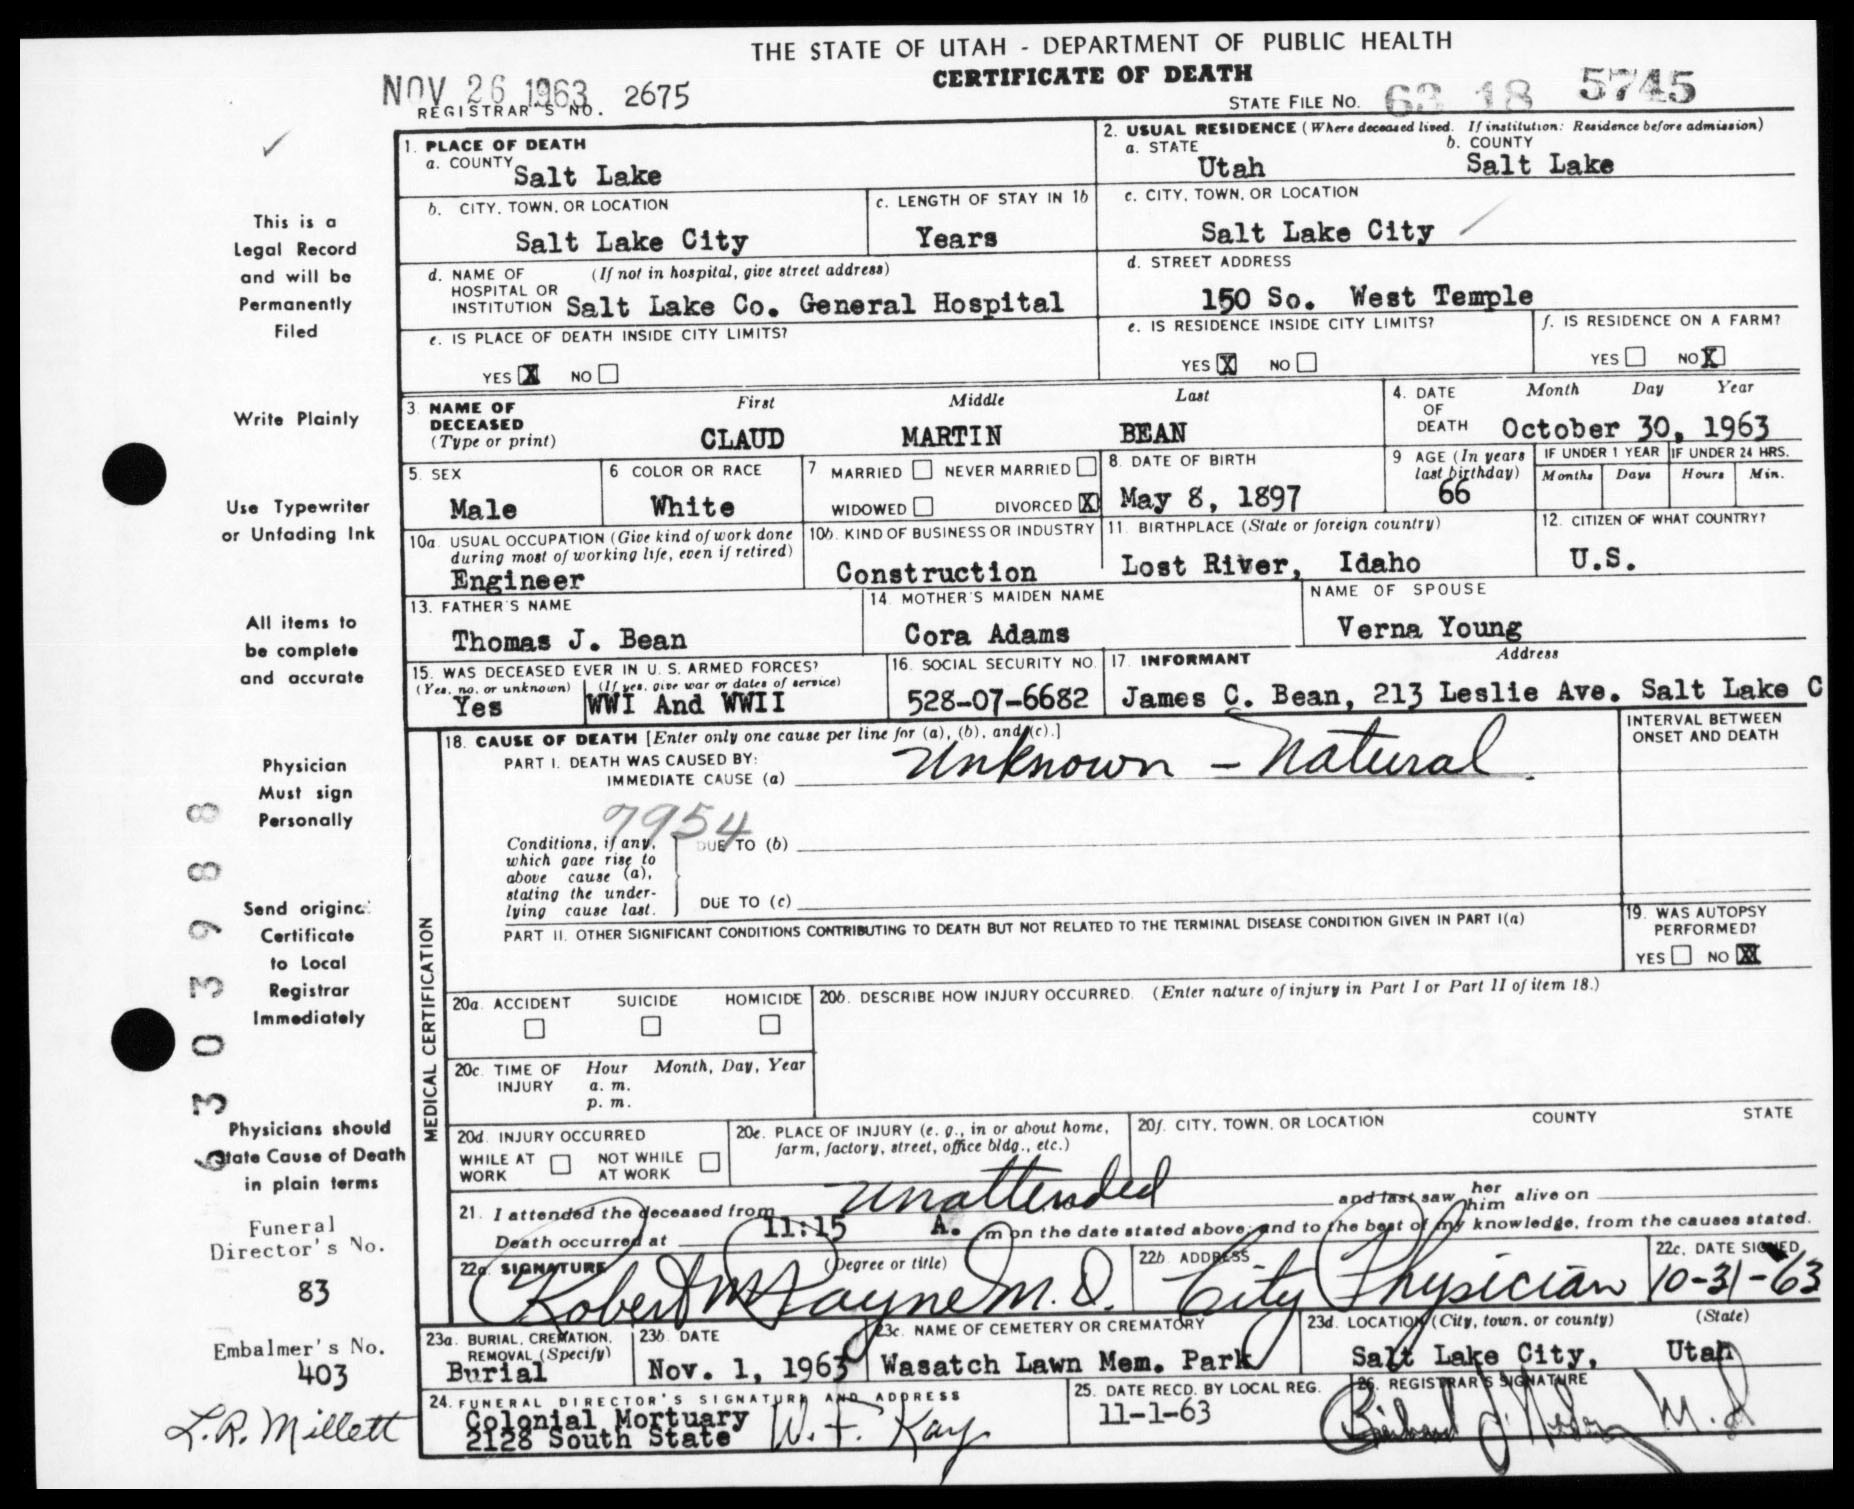 THE STATE OF UTAH - DEPARTMENT OF PUBLIC HEALTH
CERTIFICATE OF DEATH
NOV 26 1963
REGISTRAR'S NO. 2675
STATE FILE NO. 63 18 5745
This is a
Legal Record
and will be
Permanently
Filed
Write Plainly
Use Typewriter
or Unfading Ink
All items to
be complete
and accurate
Physician
Must sign
Personally
Send original
Certificate
to Local
Registrar
Immediately
Physicians should
State Cause of Death
in plain terms
Funeral
Director's No.
83
Embalmer's No.
403
L.R. Millett
6303988
1. PLACE OF DEATH
a. COUNTY Salt Lake
b. CITY, TOWN, OR LOCATION
Salt Lake City
c. LENGTH OF STAY IN 1b
Years
d. NAME OF (If not in hospital, give street address)
HOSPITAL OR
INSTITUTION Salt Lake Co. General Hospital
e. IS PLACE OF DEATH INSIDE CITY LIMITS?
YES X NO
2. USUAL RESIDENCE (Where deceased lived. If institution: Residence before admission)
a. STATE Utah
b. COUNTY Salt Lake
c. CITY, TOWN, OR LOCATION
Salt Lake City
d. STREET ADDRESS
150 So. West Temple
e. IS RESIDENCE INSIDE CITY LIMITS?
YES X NO
f. IS RESIDENCE ON A FARM?
YES NO X
3. NAME OF First Middle Last
DECEASED
(Type or print) CLAUD MARTIN BEAN
4. DATE Month Day Year
OF
DEATH October 30, 1963
5. SEX
Male
6 COLOR OR RACE
White
7 MARRIED NEVER MARRIED
WIDOWED DIVORCED X
8. DATE OF BIRTH
May 8, 1897
9 AGE (In years
last birthday)
66
IF UNDER 1 YEAR IF UNDER 24 HRS.
Months Days Hours Min.
10a. USUAL OCCUPATION (Give kind of work done
during most of working life, even if retired)
Engineer
10b. KIND OF BUSINESS OR INDUSTRY
Construction
11. BIRTHPLACE (State or foreign country)
Lost River, Idaho
12. CITIZEN OF WHAT COUNTRY?
U.S.
13. FATHER'S NAME
Thomas J. Bean
14. MOTHER'S MAIDEN NAME
Cora Adams
NAME OF SPOUSE
Verna Young
15. WAS DECEASED EVER IN U. S. ARMED FORCES?
(Yes, no, or unknown) (If yes, give war or dates of service)
Yes WWI And WWII
16. SOCIAL SECURITY NO.
528-07-6682
17. INFORMANT Address
James C. Bean, 213 Leslie Ave. Salt Lake C
MEDICAL CERTIFICATION
18. CAUSE OF DEATH [Enter only one cause per line for (a), (b), and (c).]
PART I. DEATH WAS CAUSED BY:
IMMEDIATE CAUSE (a) Unknown - Natural
INTERVAL BETWEEN
ONSET AND DEATH
7954
Conditions, if any,
which gave rise to
above cause (a),
stating the under-
lying cause last.
DUE TO (b)
DUE TO (c)
PART II. OTHER SIGNIFICANT CONDITIONS CONTRIBUTING TO DEATH BUT NOT RELATED TO THE TERMINAL DISEASE CONDITION GIVEN IN PART I(a)
19. WAS AUTOPSY
PERFORMED?
YES NO X
20a. ACCIDENT SUICIDE HOMICIDE
20b. DESCRIBE HOW INJURY OCCURRED. (Enter nature of injury in Part I or Part II of item 18.)
20c. TIME OF Hour Month, Day, Year
INJURY a. m.
p. m.
20d. INJURY OCCURRED
WHILE AT NOT WHILE
WORK AT WORK
20e. PLACE OF INJURY (e. g., in or about home,
farm, factory, street, office bldg., etc.)
20f. CITY, TOWN, OR LOCATION COUNTY STATE
21. I attended the deceased from unattended and last saw her him alive on
Death occurred at 11:15 A. m on the date stated above; and to the best of my knowledge, from the causes stated.
22a. SIGNATURE (Degree or title)
Robert M Payne M.D.
22b. ADDRESS
City Physician
22c. DATE SIGNED
10-31-63
23a. BURIAL, CREMATION,
REMOVAL (Specify)
Burial
23b. DATE
Nov. 1, 1963
23c. NAME OF CEMETERY OR CREMATORY
Wasatch Lawn Mem. Park
23d. LOCATION (City, town, or county) (State)
Salt Lake City, Utah
24. FUNERAL DIRECTOR'S SIGNATURE AND ADDRESS
Colonial Mortuary
2128 South State W. F. Kay
25. DATE RECD. BY LOCAL REG.
11-1-63
26. REGISTRAR'S SIGNATURE
M.D